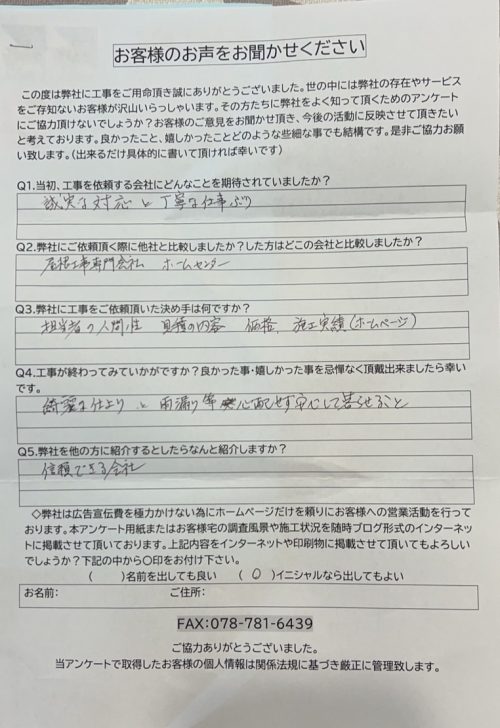 お客様のお声をお聞かせください
この度は弊社に工事をご用命頂き誠にありがとうございました。世の中には弊社の存在やサービス
をご存知ないお客様が沢山いらっしゃいます。その方たちに弊社をよく知って頂くためのアンケート
にご協力頂けないでしょうか?お客様のご意見をお聞かせ頂き、今後の活動に反映させて頂きたい
と考えております。良かったこと、嬉しかったことどのような些細な事でも結構です。是非ご協力お願
い致します。(出来るだけ具体的に書いて頂ければ幸いです)
Q1.当初、工事を依頼する会社にどんなことを期待されていましたか?
誠実な対応と丁寧な仕事ぶり
Q2.弊社にご依頼頂く際に他社と比較しましたか?した方はどこの会社と比較しましたか?
屋根工事専門会社 ホームセンター
Q3.弊社に工事をご依頼頂いた決め手は何ですか?
担当者の人間性 見積の内容 価格、施工実績(ホームページ)
Q4.工事が終わってみていかがですか?良かった事・嬉しかった事を忌憚なく頂戴出来ましたら幸い
です。
綺麗な仕上りと雨漏り等心配せず安心して暮らせること
Q5.弊社を他の方に紹介するとしたらなんと紹介しますか?
信頼できる会社
◇弊社は広告宣伝費を極力かけない為にホームページだけを頼りにお客様への営業活動を行って
おります。本アンケート用紙またはお客様宅の調査風景や施工状況を随時ブログ形式のインターネッ
トに掲載させて頂いております。上記内容をインターネットや印刷物に掲載させて頂いてもよろしい
でしょうか?下記の中から〇印をお付け下さい。
( )名前を出しても良い (〇)イニシャルなら出してもよい
お名前: ご住所:
FAX:078-781-6439
ご協力ありがとうございました。
当アンケートで取得したお客様の個人情報は関係法規に基づき厳正に管理致します。